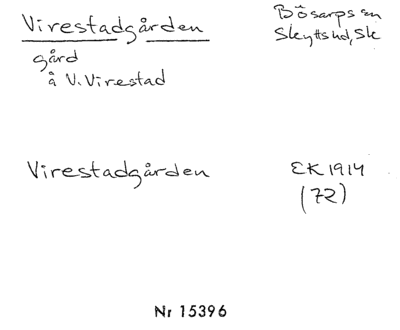 Virestadgården
Bösarps sn
Skytts hd, Sk
gård
å V. Virestad
Virestadgården
EK 1914
(72)
Nr 15396